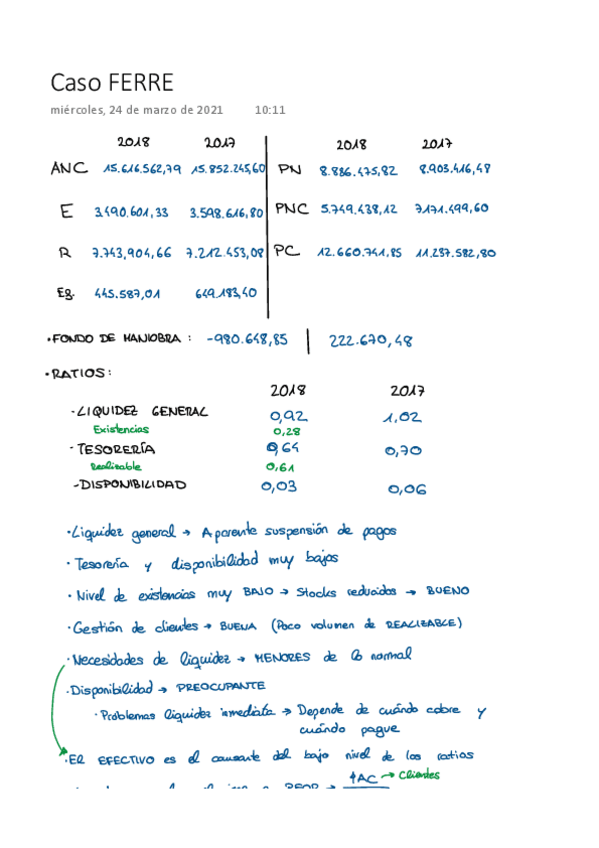 Caso FERRE
miércoles, 24 de marzo de 2021 10:11
2018 2017 2018 2017
ANC 15.616.562,79 15.852.245,60 PN 8.836.475,82 8.903.416,48
E 3.490.601,33 3.598.616,80 PNC 5.749.438,12 7.171.499,60
R 7.743,904,66 7.212.453,08 PC 12.660.741,85 11.237.582,80
Eg. 445.587,01 649.183,40
• FONDO DE MANIOBRA : -980.648,85 222.670,48
• RATIOS:
2018 2017
• LIQUIDEZ GENERAL 0,92 1,02
Existencias 0,28
• TESORERÍA 0,64 0,70
Realizable 0,61
- DISPONIBILIDAD 0,03 0,06
• Liquidez general → Aparente suspensión de pagos
• Tesorería y disponibilidad muy bajos
• Nivel de existencias muy BAJO → Stocks reducidos → BUENO
• Gestión de clientes → BUENA (Poco volumen de REALIZABLE)
• Necesidades de liquidez → MENORES de lo normal
• Disponibilidad → PREOCUPANTE
• Problemas liquidez inmediata → Depende de cuándo cobre y
cuándo pague
• El EFECTIVO es el causante del bajo nivel de los ratios
↑AC → Clientes